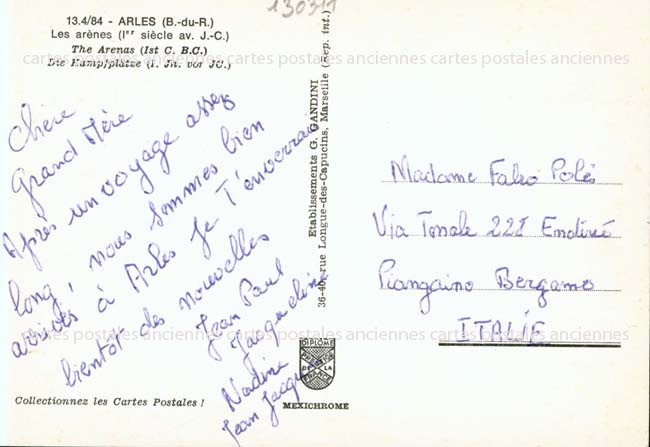 130311
13.4/84 - ARLES (B.-du-R.)
Les arènes (Ier siècle av. J.-C.)
The Arenas (Ist C. B.C.)
Die Kampfplätze (I. Jh. vor JC.)
cartes postales anciennes cartes postales anciennes cartes postales anciennes
Chère
Grand Mère
Après un voyage assez
long, nous sommes bien
arrivés à Arles je T'enverrais
bientôt des nouvelles
Jean Paul
Jacqueline
Nadine
Jean Jacques
Etablissements G. GANDINI
36-40, rue Longue-des-Capucins, Marseille (Rep. int.)
Madame Fabio
Via Tonale 221
Bergamo
ITALIE
cartes postales anciennes cartes postales anciennes cartes postales anciennes
DIPLOME
DE LA
FRANCE
MEXICHROME
Collectionnez les Cartes Postales !